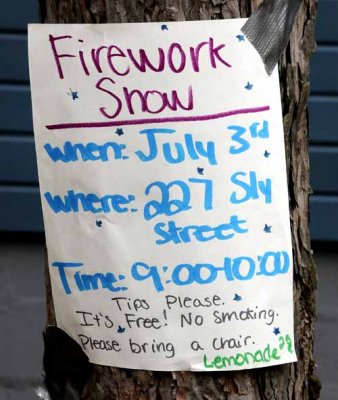 Firework
Show
When: July 3rd
Where: 227 Sly
Street
Time: 9:00-10:00
Tips Please.
It's Free! No Smoking.
Please bring a chair.
Lemonade